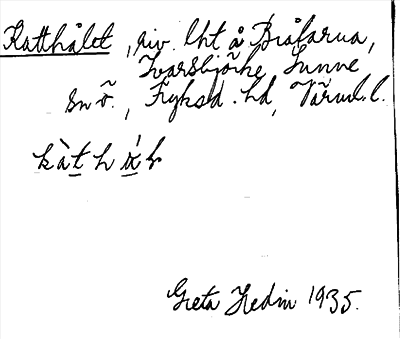 Katthålet, riv. lht å Bråfarna,
Ivarsbjörke, Sunne
sn ö., Fryksd. hd, Värml. l.
kàt h
Greta Hedin 1935.